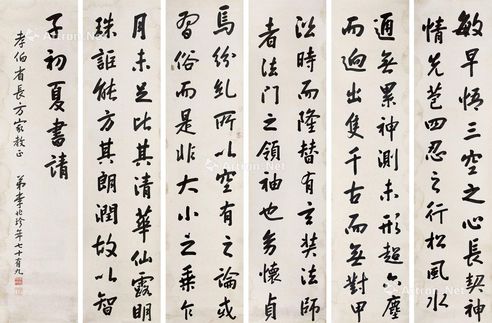 敏早悟三空之心長契神
情先苞四忍之行松風水
通無累神測未形超六塵
而迥出隻千古而無對甲
沿時而隆替有玄奘法師
者法門之領袖也幼懷貞
焉紛糺所以空有之論或
習俗而是非大小之乘乍
月未足比其清華仙露明
珠詎能方其朗潤故以智
子初夏書請
孝伯省長方家教正 弟李兆珍年七十有九